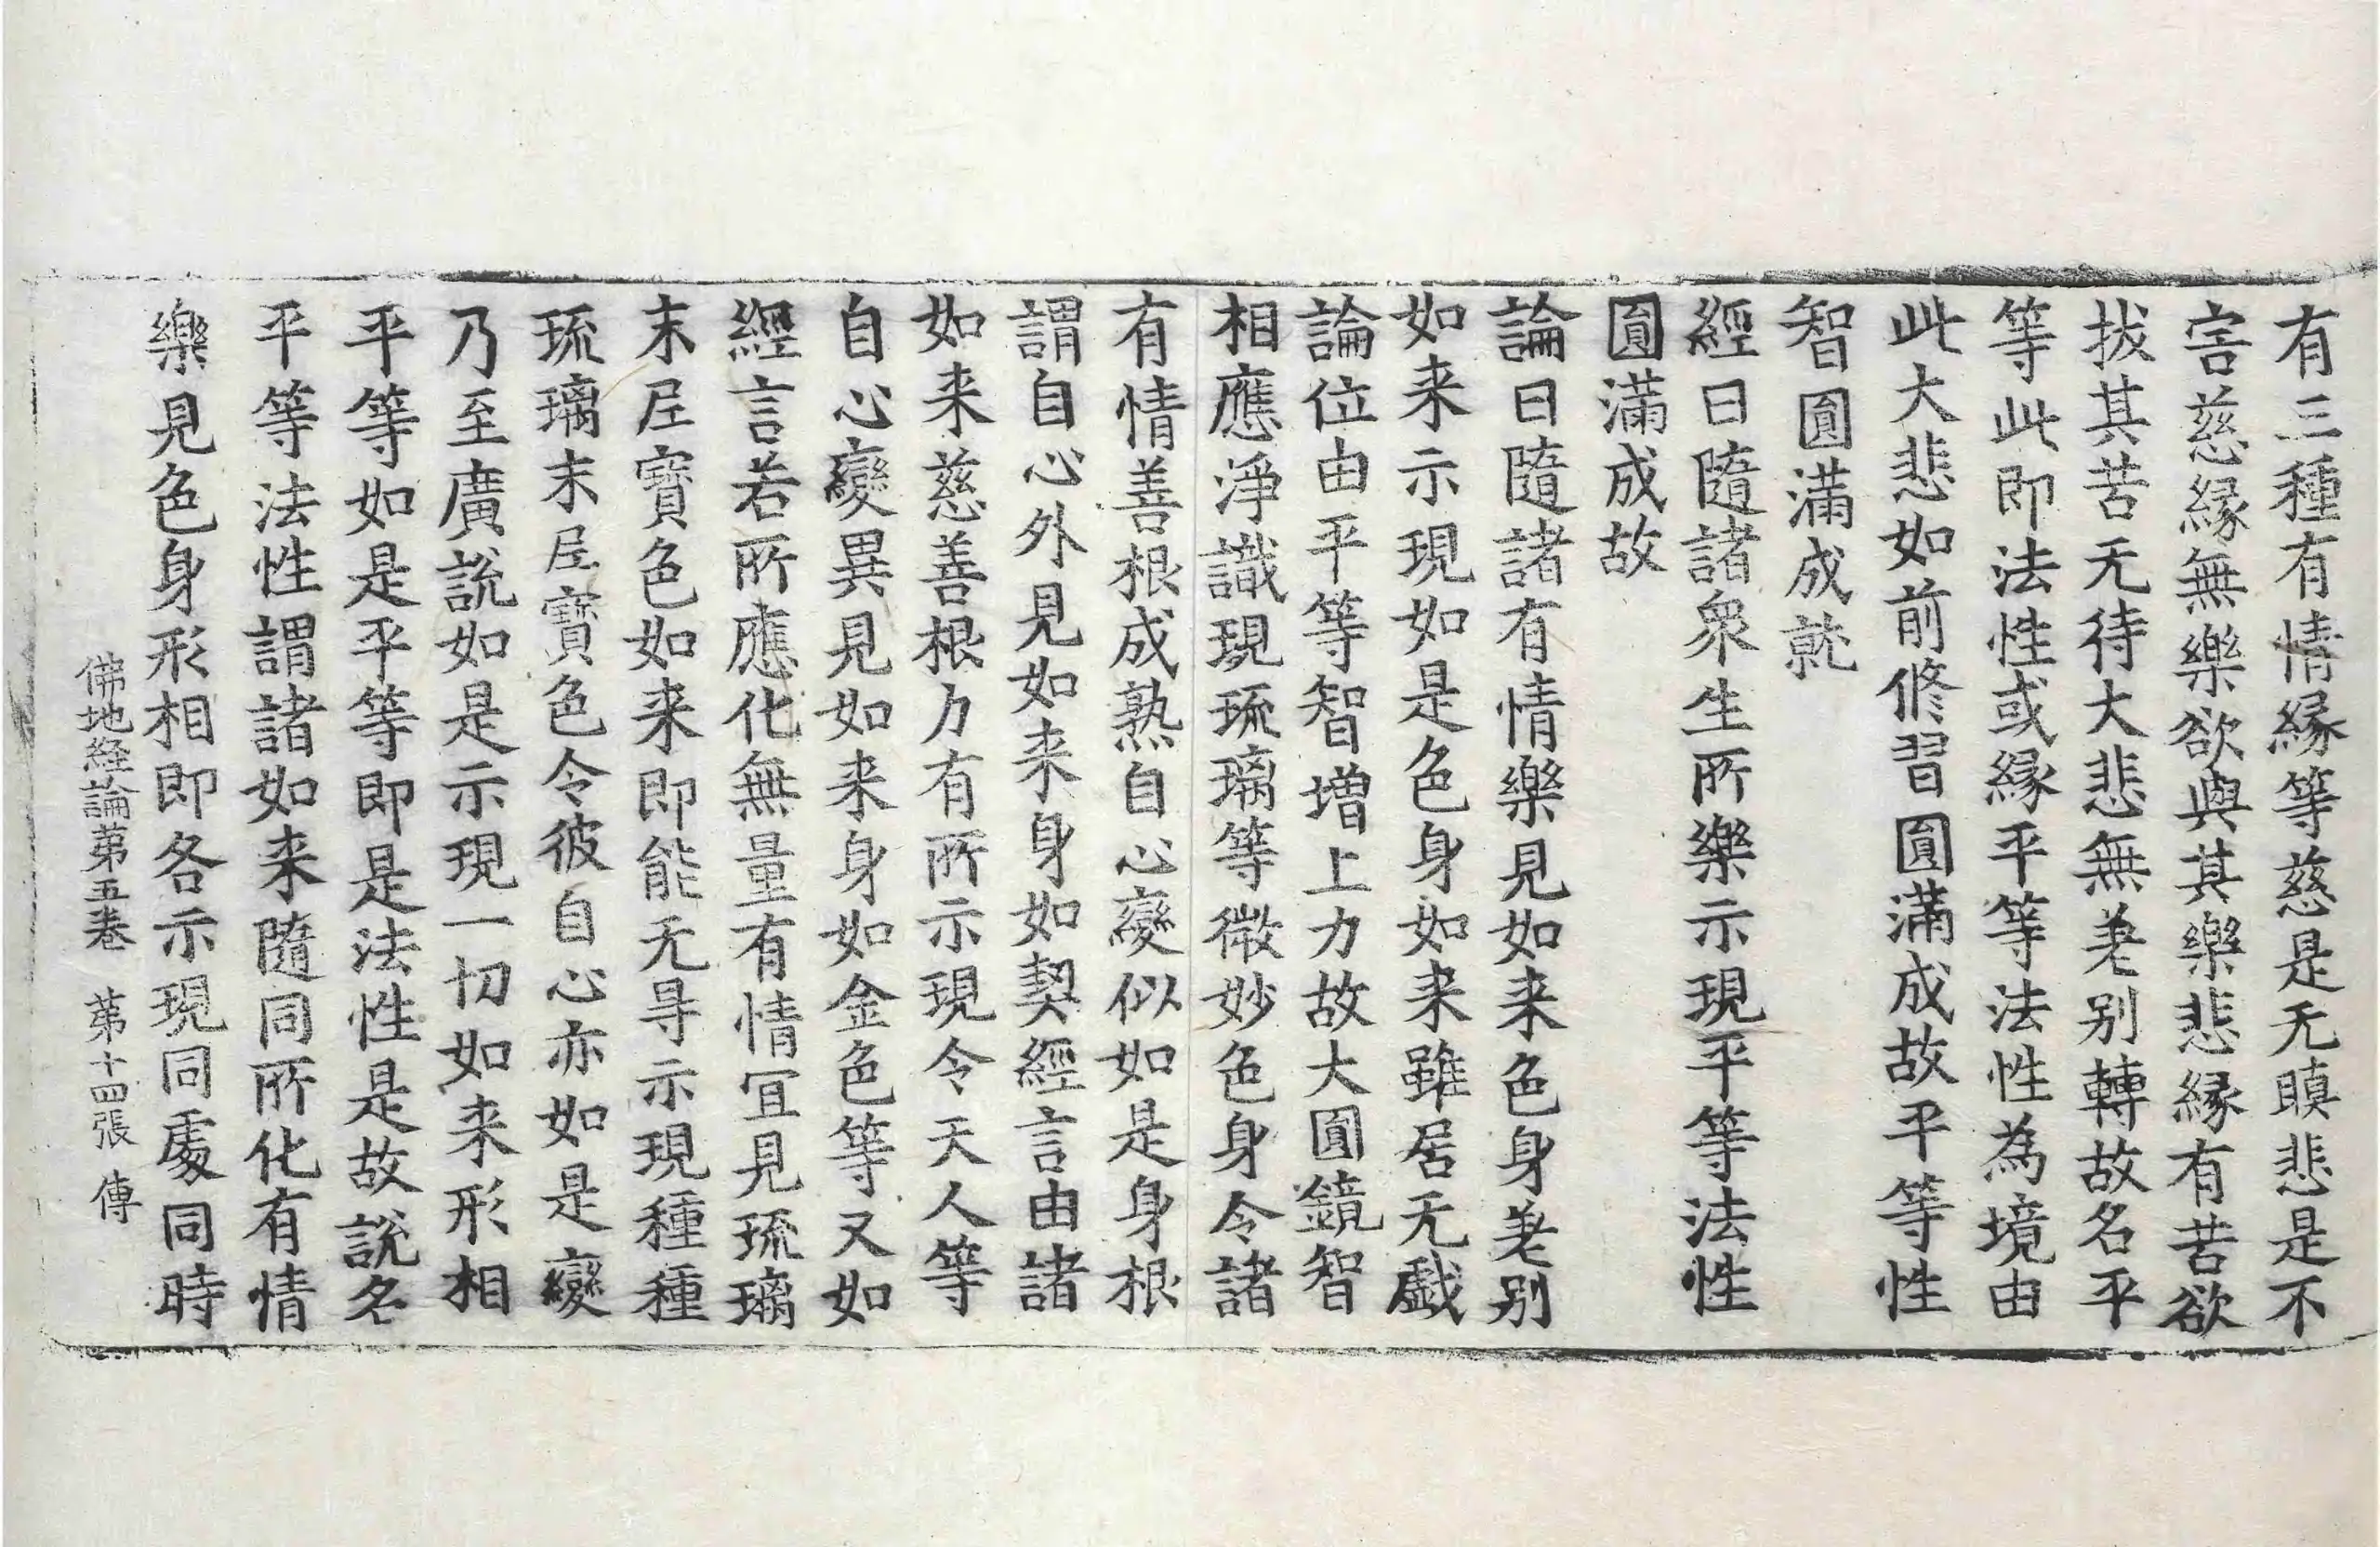 有三種有情縁等慈是无瞋悲是不
害慈縁無樂欲與其樂悲縁有苦欲
拔其苦无待大悲無差别轉故名平
等此即法性或縁平等法性為境由
此大悲如前修習圓滿成故平等性
智圓滿成就
經曰隨諸衆生所樂示現平等法性
圓滿成故
論曰隨諸有情樂見如来色身差别
如来示現如是色身如来雖居无戲
論位由平等智增上力故大圓鏡智
相應淨識現琉璃等微妙色身令諸
有情善根成熟自心變似如是身根
謂自心外見如来身如契經言由諸
如来慈善根力有所示現令天人等
自心變異見如来身如金色等又如
經言若所應化無量有情冝見琉璃
末尼寶色如来即能无㝵示現種種
琉璃末尼寶色令彼自心亦如是變
乃至廣說如是示現一切如来形相
平等如是平等即是法性是故說名
平等法性謂諸如来隨同所化有情
樂見色身形相即各示現同處同時
佛地經論苐五卷 苐十四張 傳